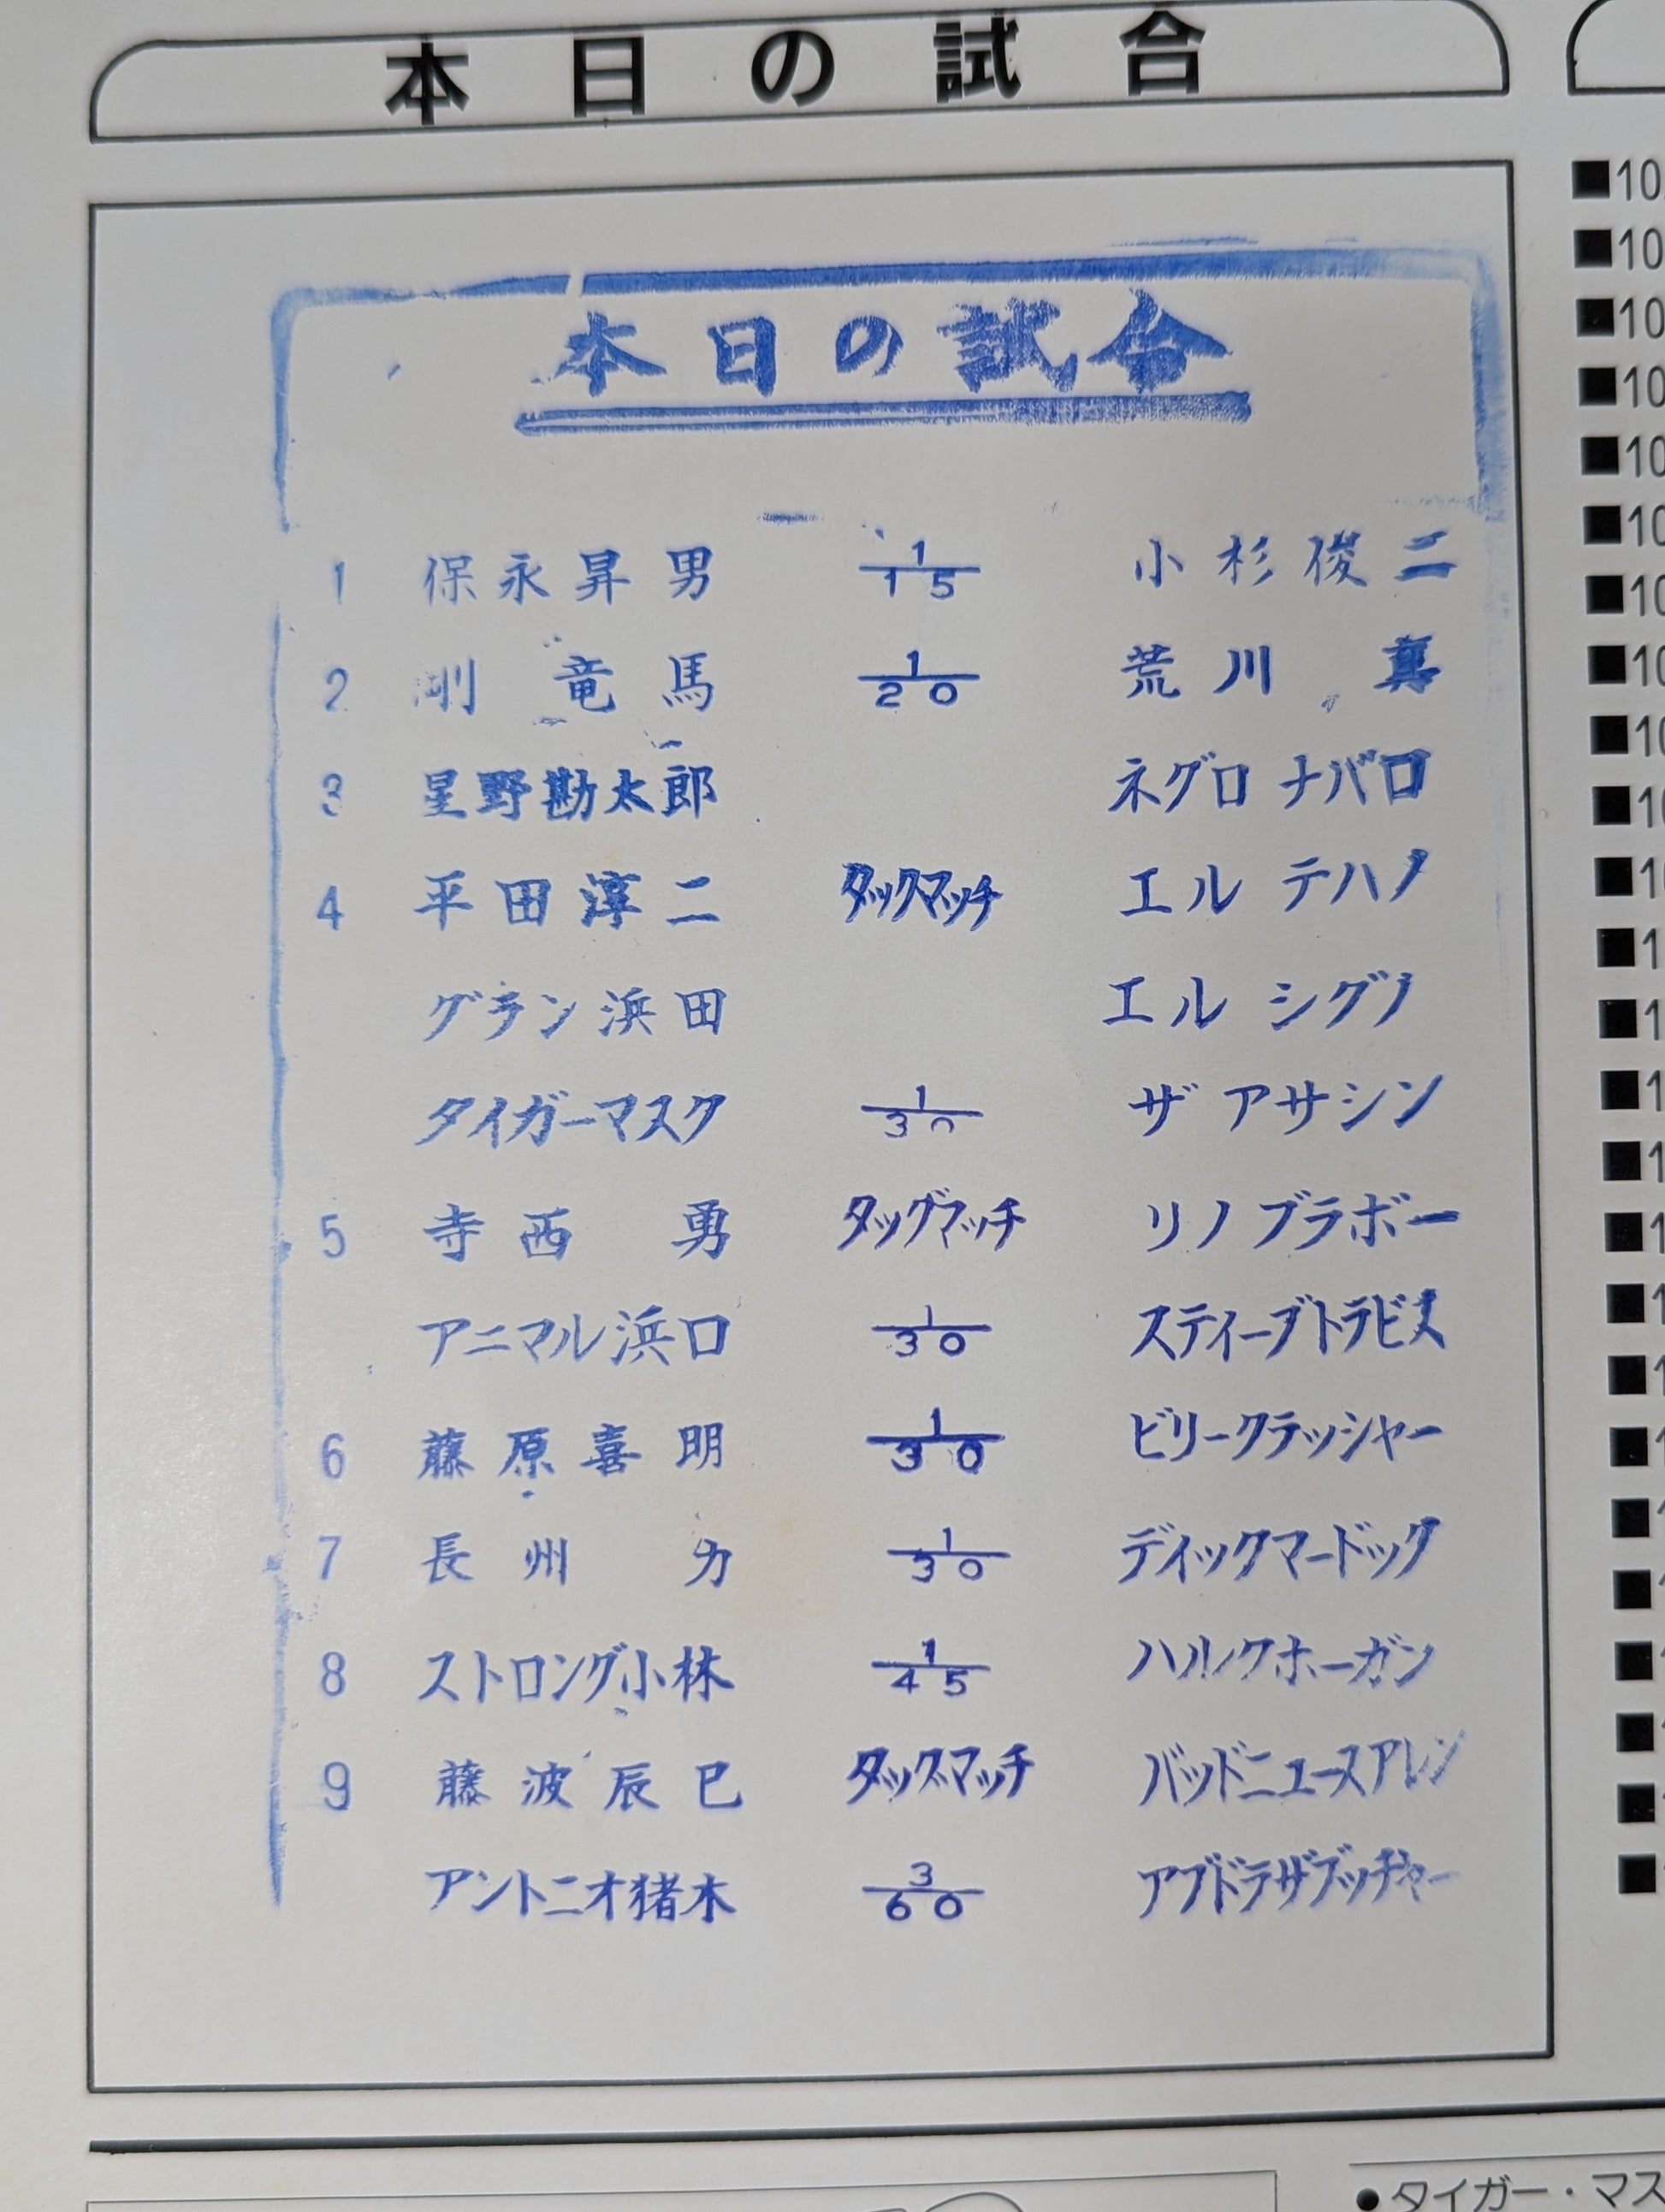 本日の試合
本日の試合
1 保永昇男 1/15 小杉俊二
2 剛 竜馬 1/20 荒川 真
3 星野勘太郎 ネグロ ナバロ
4 平田淳二 タッグマッチ エル テハノ
グラン浜田 エル シグノ
タイガーマスク 1/30 ザ アサシン
5 寺西 勇 タッグマッチ リノ ブラボー
アニマル浜口 1/30 スティーブトラビス
6 藤原喜明 1/30 ビリークラッシャー
7 長州 力 1/30 ディックマードック
8 ストロング小林 1/45 ハルクホーガン
9 藤波辰巳 タッグマッチ バッドニュースアレン
アントニオ猪木 3/60 アブドラザブッチャー
■10
■10
■10
■10
■10
■10
■10
■10
■10
■10
■1
■1
■1
■1
■1
■1
■1
■1
●タイガー・マス